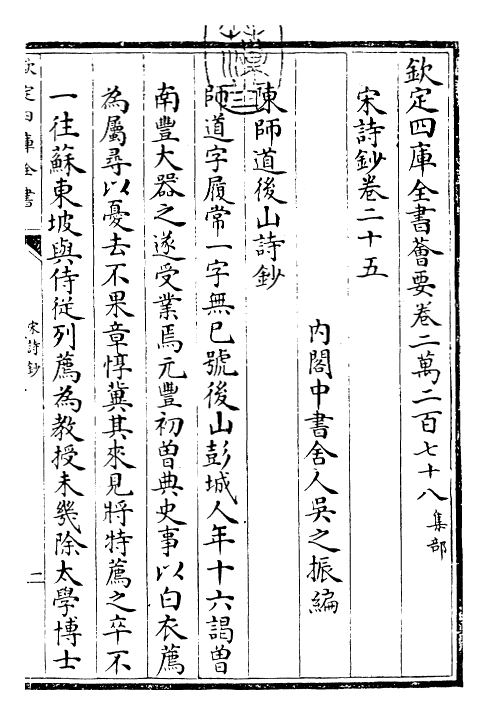 欽定四庫全書薈要卷二萬二百七十八 集部
宋詩鈔卷二十五
內閣中書舍人吳之振編
陳師道後山詩鈔
師道字履常一字無已號後山彭城人年十六謁曾
南豐大器之遂受業焉元豐初曾典史事以白衣薦
為屬尋以憂去不果章惇冀其來見將特薦之卒不
一往蘇東坡與侍從列薦為教授未幾除太學博士
欽定四庫全書
宋詩鈔
二